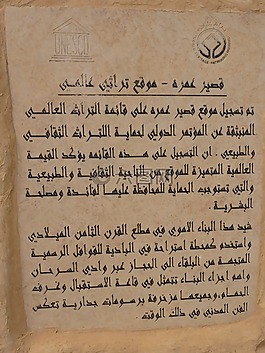 UNESCO
قصير عمره - موقع تراثي عالمي
تم تسجيل موقع قصير عمره على قائمة التراث العالمي
المنبثقة عن المؤتمر الدولي لحماية التراث الثقافي
والطبيعي . ان التسجيل على هذه القائمة يؤكد القيمة
العالمية المتميزة للموقع من الناحية الثقافية والطبيعية
والتي تستوجب الحماية للمحافظة عليها لفائدة ومصلحة
البشرية .
شيد هذا البناء الاموي في مطلع القرن الثامن الميلادي
واستخدم كمحطة استراحة في البادية للقوافل الرسمية
المتجهة من البلقاء الى الحجاز عبر وادي السرحان
واهم اجزاء البناء تتمثل في قاعة الاستقبال وغرف
الحمام، وجميعها مزخرفة برسومات جدارية تعكس
الفن المدني في ذلك الوقت .